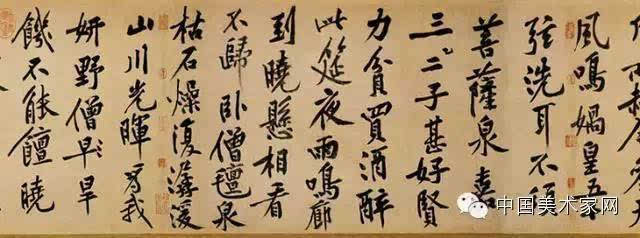 風鳴媧皇五
弦洗耳不須
菩薩泉嘉
三二子甚好賢
力貧買酒醉
此筵夜雨鳴廊
到曉懸相看
不歸臥僧氈泉
枯石燥復潺湲
山川光暉為我
妍野僧早旱
饑不能饘曉
中国美术家网